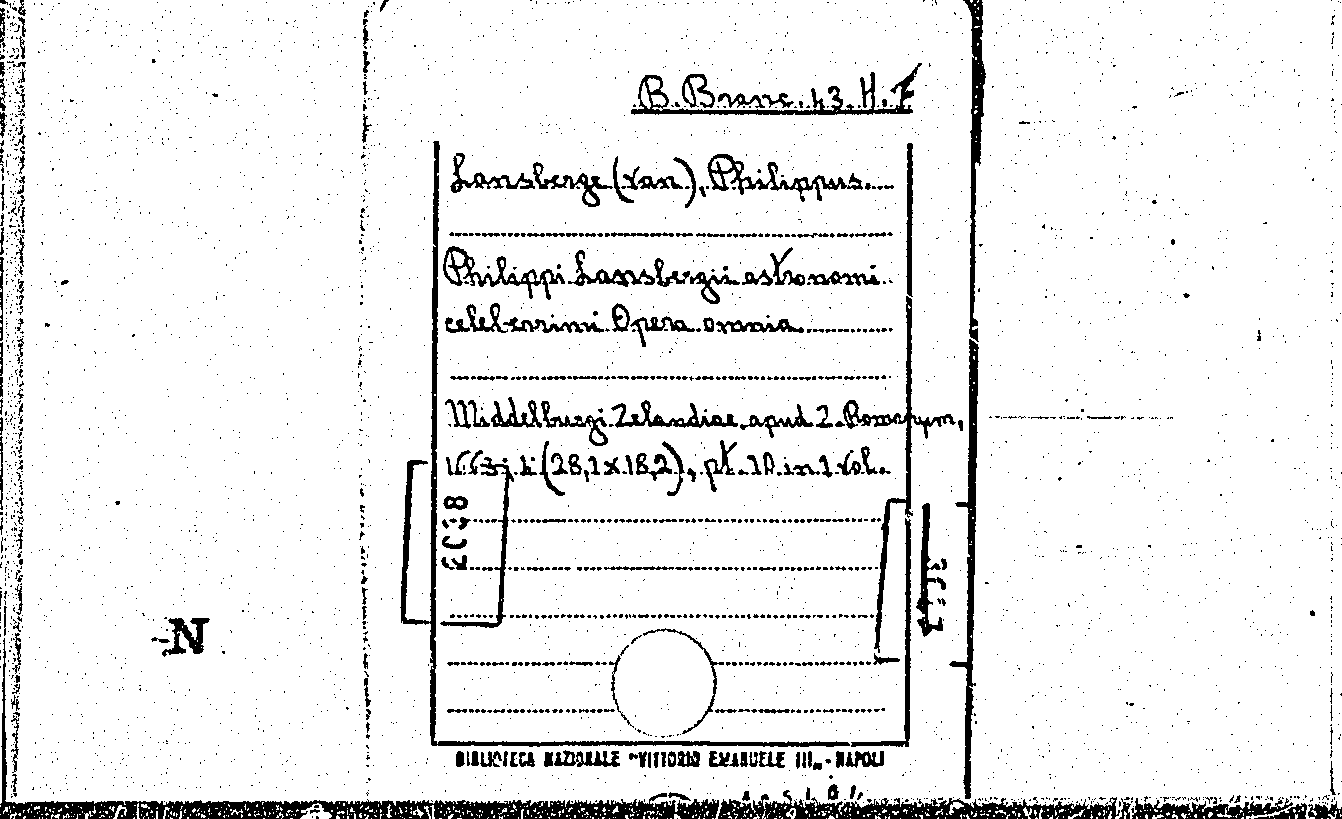 B. Branc. 43. H. 7
Lansberge (van), Philippus.
Philippi Lansbergii astronomi
celeberrimi Opera omnia
Middelburgi Zelandiae, apud Z. Romanum,
1663; 4 (28,1 x 18,2), pt. 10 in 1 vol.
N
BIBLIOTECA NAZIONALE "VITTORIO EMANUELE III„ - NAPOLI